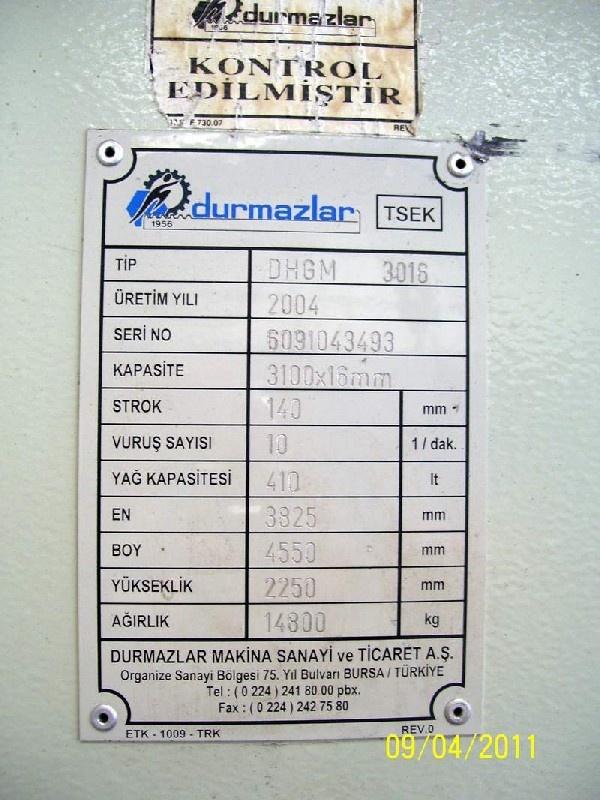 1956 durmazlar
KONTROL
EDİLMİŞTİR
F 730.07 REV.
1956 durmazlar TSEK
TİP DHGM 3016
ÜRETİM YILI 2004
SERİ NO 6091043493
KAPASİTE 3100x16mm
STROK 140 mm
VURUŞ SAYISI 10 1/dak.
YAĞ KAPASİTESİ 410 lt
EN 3825 mm
BOY 4550 mm
YÜKSEKLİK 2250 mm
AĞIRLIK 14800 kg
DURMAZLAR MAKİNA SANAYİ ve TİCARET A.Ş.
Organize Sanayi Bölgesi 75. Yıl Bulvarı BURSA / TÜRKİYE
Tel : ( 0 224 ) 241 80 00 pbx.
Fax : ( 0 224 ) 242 75 80
ETK - 1009 - TRK REV.0
09/04/2011